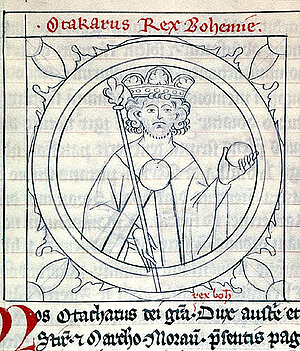 · Otakarus Rex Bohemie.
rex boh
Nos Otacharus dei gr̄a. Dux austͥe et
Stir͛ ⁊ Marcho Morau͛. p̄sentis pag